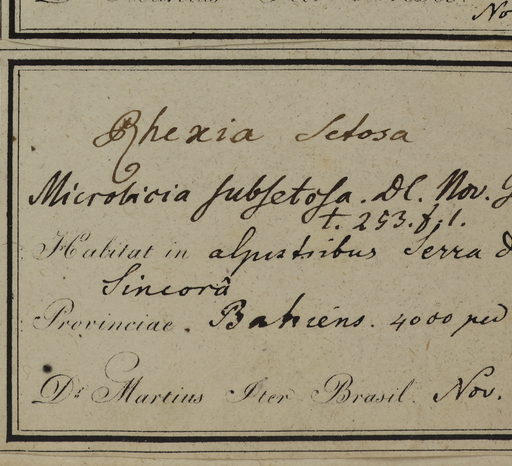 No
Rhexia setosa
Microlicia subsetosa. DC. Nov. G
t. 253. f. 1.
Habitat in alpestribus Serra d
Sincorâ
Provinciae. Bahiens. 4000 ped
Dr. Martius Iter Brasil. Nov.